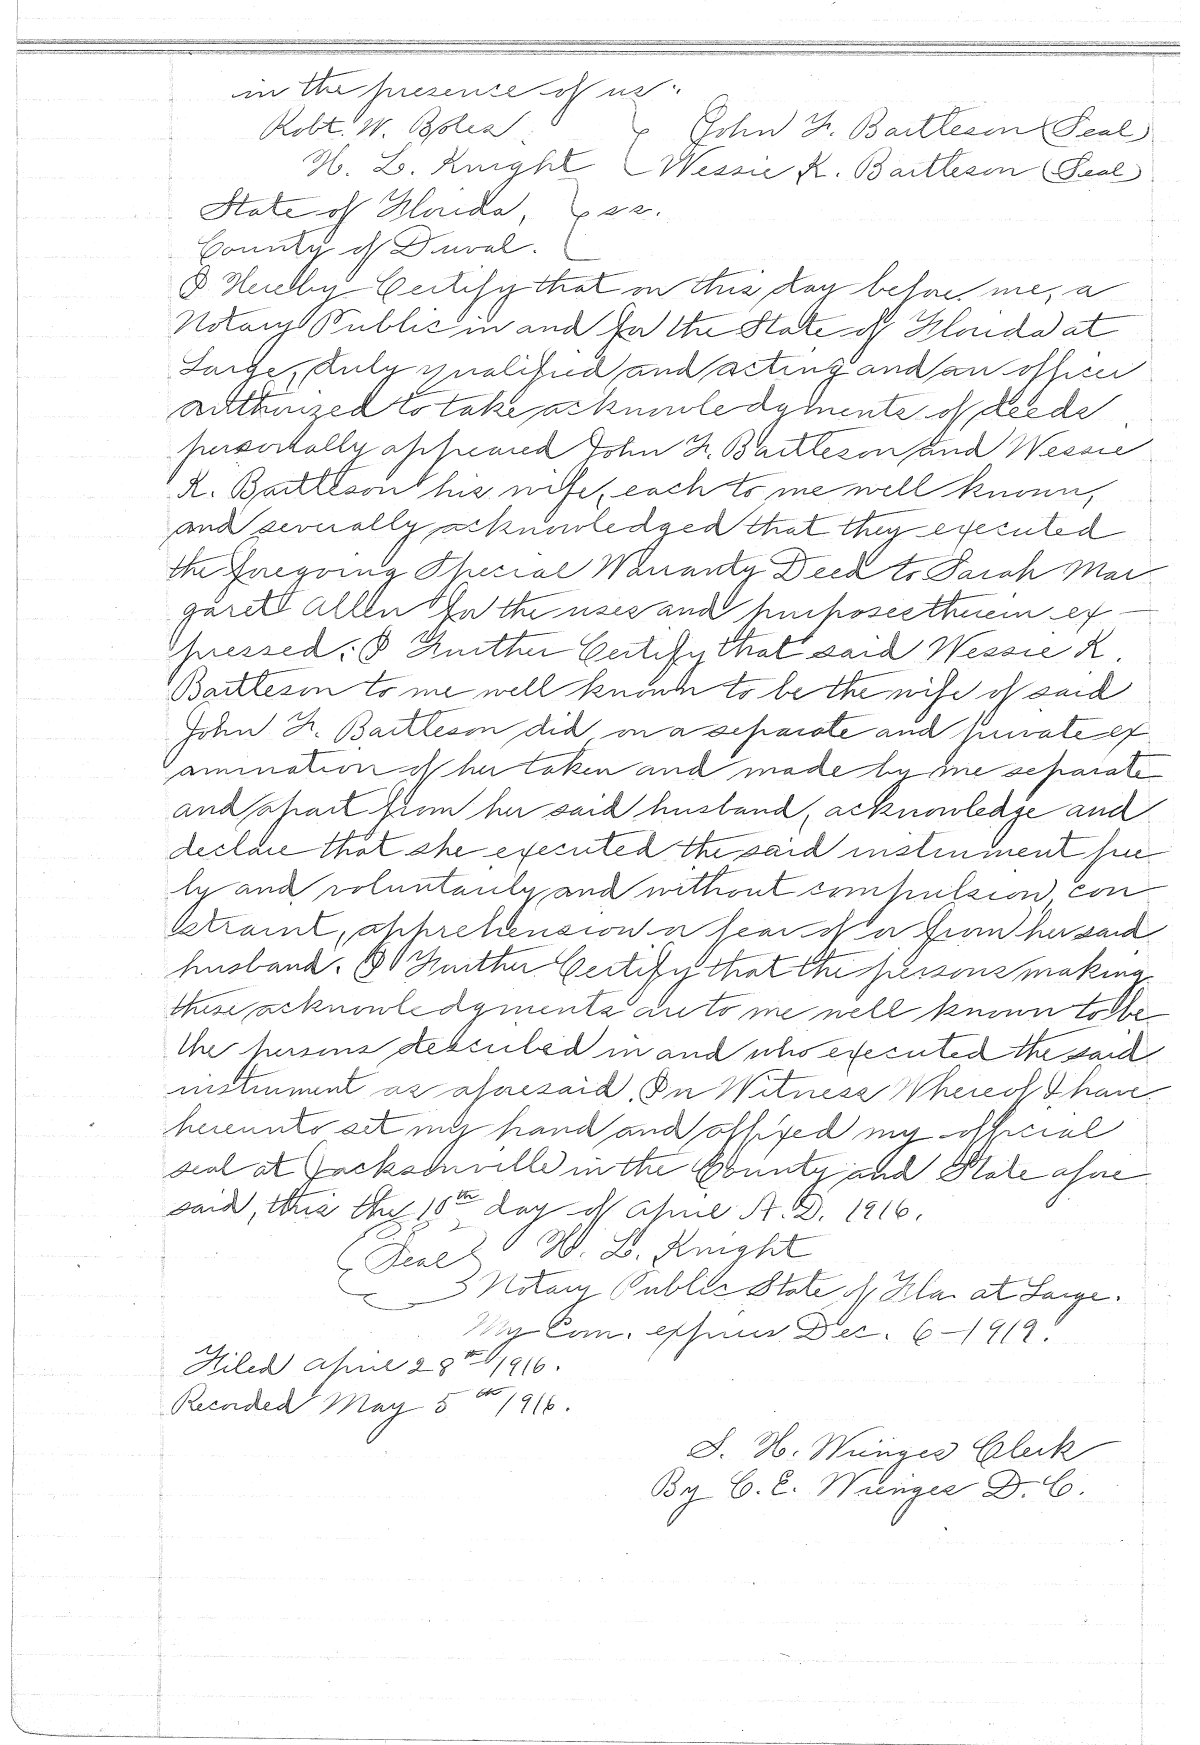 in the presence of us:
Robt. W. Boles John F. Bartleson (Seal)
H. L. Knight Wessie K. Bartleson (Seal)
State of Florida, ss.
County of Duval.
I Hereby Certify that on this day before me, a
Notary Public in and for the State of Florida at
Large, duly qualified and acting and an officer
authorized to take acknowledgments of deeds
personally appeared John F. Bartleson and Wessie
K. Bartleson his wife, each to me well known,
and severally acknowledged that they executed
the foregoing Special Warranty Deed to Sarah Mar
garet Allen for the uses and purposes therein ex-
pressed; I Further Certify that said Wessie K.
Bartleson to me well known to be the wife of said
John F. Bartleson did, on a separate and private ex
amination of her taken and made by me separate
and apart from her said husband, acknowledge and
declare that she executed the said instrument free
ly and voluntarily and without compulsion, con
straint, apprehension or fear of or from her said
husband. I Further Certify that the persons making
these acknowledgments are to me well known to be
the persons described in and who executed the said
instrument as aforesaid. In Witness Whereof I have
hereunto set my hand and affixed my official
seal at Jacksonville in the County and State afore
said, this the 10th day of April A. D. 1916.
(Seal) H. L. Knight
Notary Public State of Fla. at Large.
My Com. expires Dec. 6-1919.
Filed April 28th 1916.
Recorded May 5th 1916.
Clerk
By C. E. D. C.